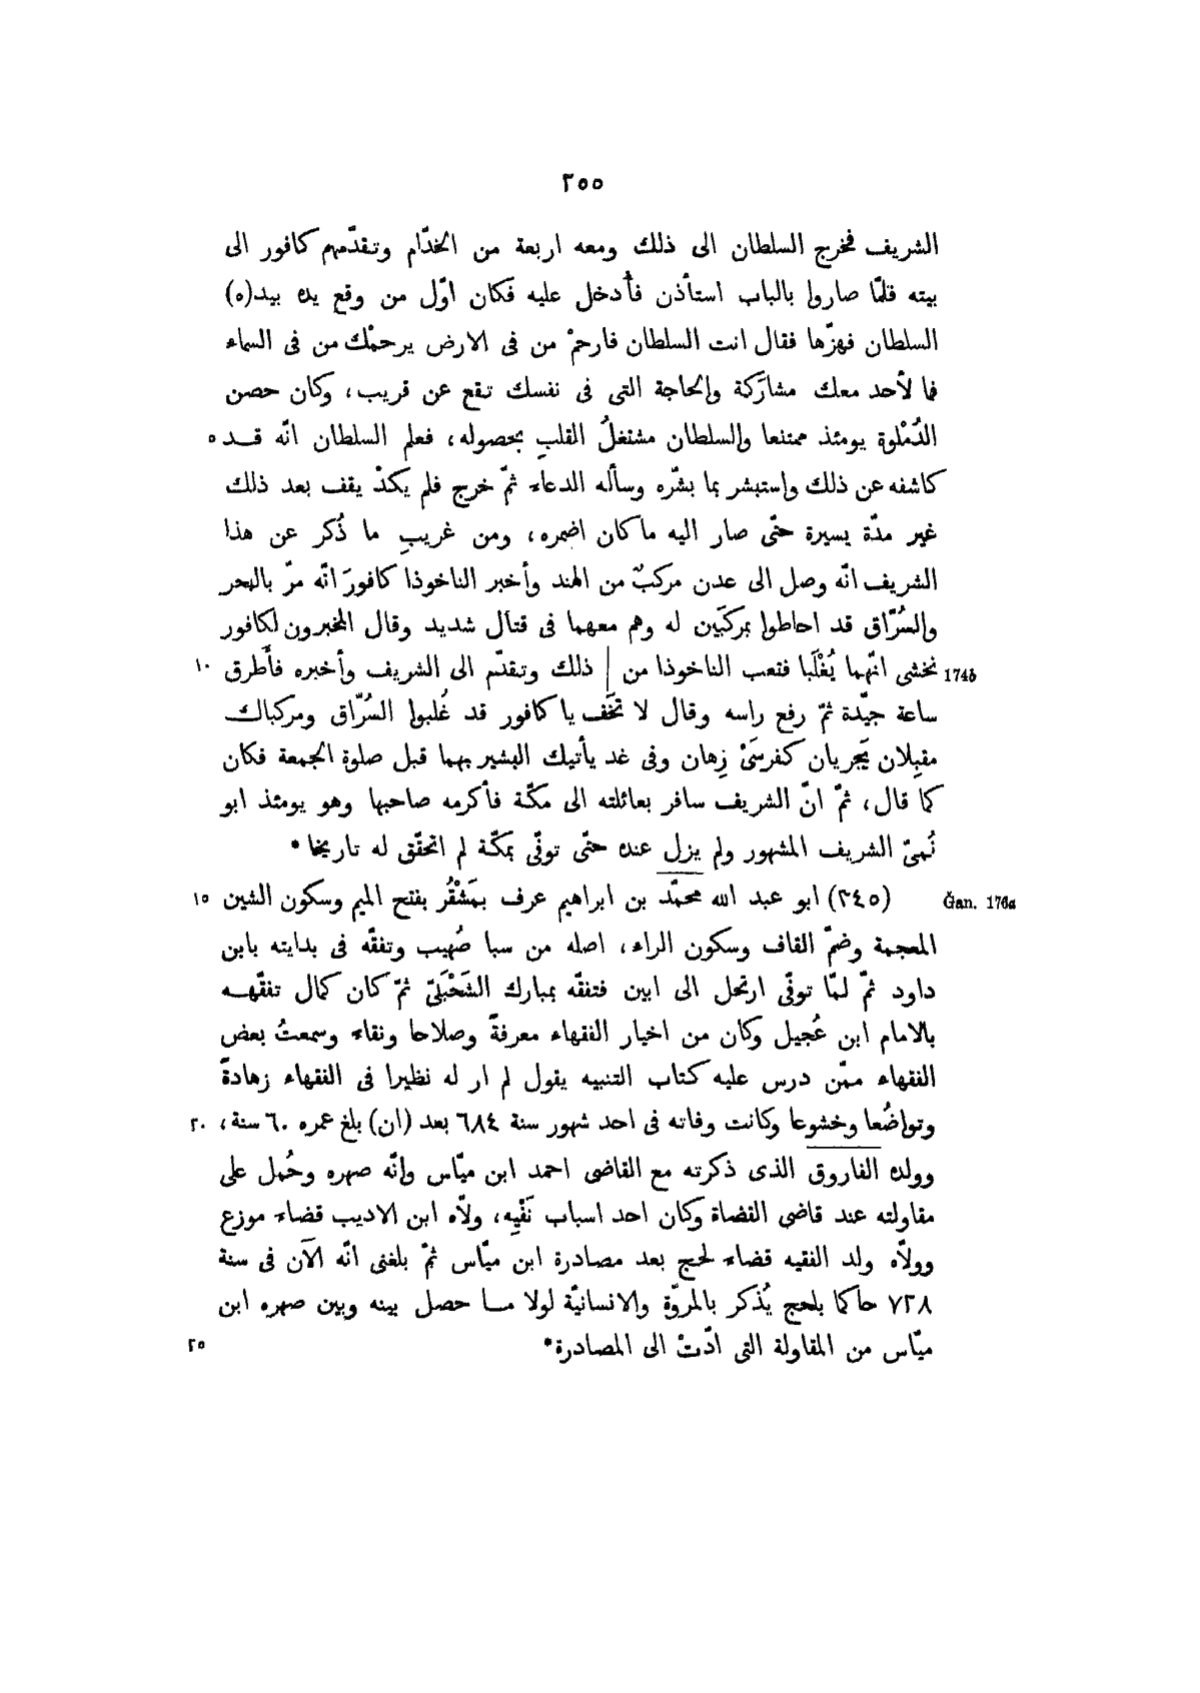 ٢٥٥
الشريف فخرج السلطان الى ذلك ومعه اربعة من الخدّام وتقدّمهم كافور الى
بيته فلمّا صاروا بالباب استأذن فأُدخل عليه فكان اوّل من وقع يده بيد(ه)
السلطان فهزّها فقال انت السلطان فارحمْ من فى الارض يرحمْك من فى السماء
فما لأحد معك مشارَكة والحاجة التى فى نفسك تقع عن قريب، وكان حصن
الدُمْلوة يومئذ ممتنعا والسلطان مشتغلُ القلبِ بحصوله، فعلم السلطان انّه قــد ٥
كاشفه عن ذلك واستبشر بما بشّره وسأله الدعاء ثمّ خرج فلم يكدْ يقف بعد ذلك
غير مدّة يسيرة حتّى صار اليه ما كان اضمره، ومن غريبِ ما ذُكر عن هذا
الشريف انّه وصل الى عدن مركبٌ من الهند وأخبر الناخوذا كافورَ انّه مرّ بالبحر
والسُرّاق قد احاطوا بمركبَين له وهم معهما فى قتال شديد وقال المخبرون لكافور
1746 نخشى انّهما يُغْلَبا فتعب الناخوذا من | ذلك وتقدّم الى الشريف وأخبره فأَطرق ١٠
ساعة جيّدة ثمّ رفع راسه وقال لا تخَف يا كافور قد غُلبوا السُرّاق ومركباك
مقبِلان يَجريان كفرسَىْ رِهان وفى غد يأتيك البشير بهما قبل صلوة الجمعة فكان
كما قال، ثمّ انّ الشريف سافر بعائلته الى مكّة فأكرمه صاحبها وهو يومئذ ابو
نُمىّ الشريف المشهور ولم يزل عنده حتّى توفّى بمكّة لم اتحقّق له تاريخا *
Ğan. 176a (٣٤٥) ابو عبد الله محمّد بن ابراهيم عرف بمَشْقُر بفتح الميم وسكون الشين ١٥
المعجمة وضمّ القاف وسكون الراء، اصله من سبا صُهيب وتفقّه فى بدايته بابن
داود ثمّ لمّا توفّى ارتحل الى ابين فتفقّه بمبارك الشَحْبَلىّ ثمّ كان كمال تفقّهــه
بالامام ابن عُجيل وكان من اخيار الفقهاء معرفةً وصلاحا ونقاء وسمعتُ بعض
الفقهاء ممّن درس عليه كتاب التنبيه يقول لم ار له نظيرا فى الفقهاء زهادةً
وتواضُعا وخشوعا وكانت وفاته فى احد شهور سنة ٦٨٤ بعد (ان) بلغ عمره ٦٠ سنة، ٢٠
وولده الفاروق الذى ذكرته مع القاضى احمد ابن ميّاس وانّه صهره وحُمل على
مقاولته عند قاضى القضاة وكان احد اسباب نَفْيِه، ولاّه ابن الاديب قضاء موزع
وولاّه ولد الفقيه قضاء لحج بعد مصادرة ابن ميّاس ثمّ بلغنى انّه الآن فى سنة
٧٢٨ حاكما بلحج يُذكر بالمروّة والانسانيّة لولا مــا حصل بينه وبين صهره ابن
ميّاس من المقاولة التى ادّتْ الى المصادرة * ٢٥